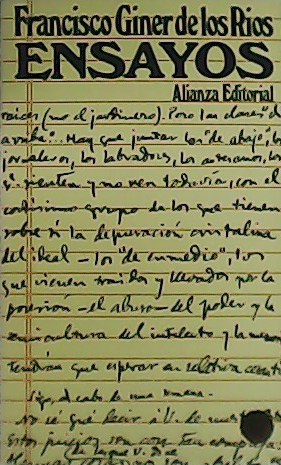 Francisco Giner de los Rios
ENSAYOS
Alianza Editorial
raíces (no al jardinero). Pero las clases "de
arriba"... Hay que juntar los "de abajo", los
jornaleros, los labradores, los artesanos, los
q. sienten y no ven todavía, con el
grupo de los que tienen
sobre sí la depuración cristalina
del ideal — los "de enmedio", los
que vienen traidos y llevados por la
posesión — el abuso del poder y la
del intelecto y la
Tendrán que esperar en relativa
Sigo, al cabo de una semana.
No sé qué decir a V. de
Estos son con